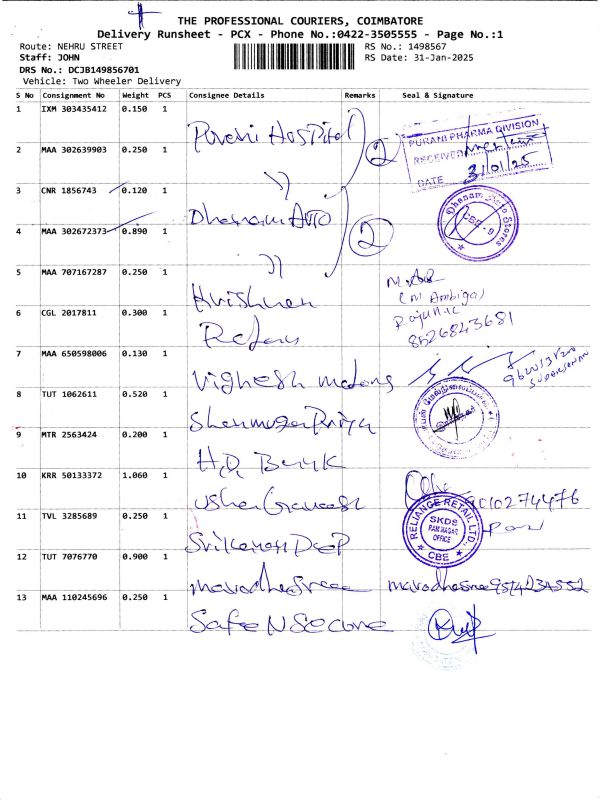 THE PROFESSIONAL COURIERS, COIMBATORE
Delivery Runsheet - PCX - Phone No.:0422-3505555 - Page No.:1
Route: NEHRU STREET
RS No.: 1498567
Staff: JOHN
RS Date: 31-Jan-2025
DRS No.: DCJB149856701
Vehicle: Two Wheeler Delivery
S No Consignment No Weight PCS Consignee Details Remarks Seal & Signature
1 IXM 303435412 0.150 1 Purani Hospital
PURANI PHARMA DIVISION
RECEIVED
DATE 31/01/25
2 MAA 302639903 0.250 1 2
3 CNR 1856743 0.120 1 Dhanam Auto
Dhanam Auto Stores
CBE - 9
4 MAA 302672373 0.890 1 2
5 MAA 707167287 0.250 1 Krishnan
(M Ambiga)
6 CGL 2017811 0.300 1
8526843681
7 MAA 650598006 0.130 1 Vighesh
8 TUT 1062611 0.520 1 Shanmuga Priya
9 MTR 2563424 0.200 1 H.D. Bank
10 KRR 50133372 1.060 1 Usha Ganesh
RELIANCE RETAIL LTD.
SKDS
RAM NAGAR
OFFICE
CBE
11 TVL 3285689 0.250 1
12 TUT 7076770 0.900 1 marudhasree
13 MAA 110245696 0.250 1 Safe N Secure